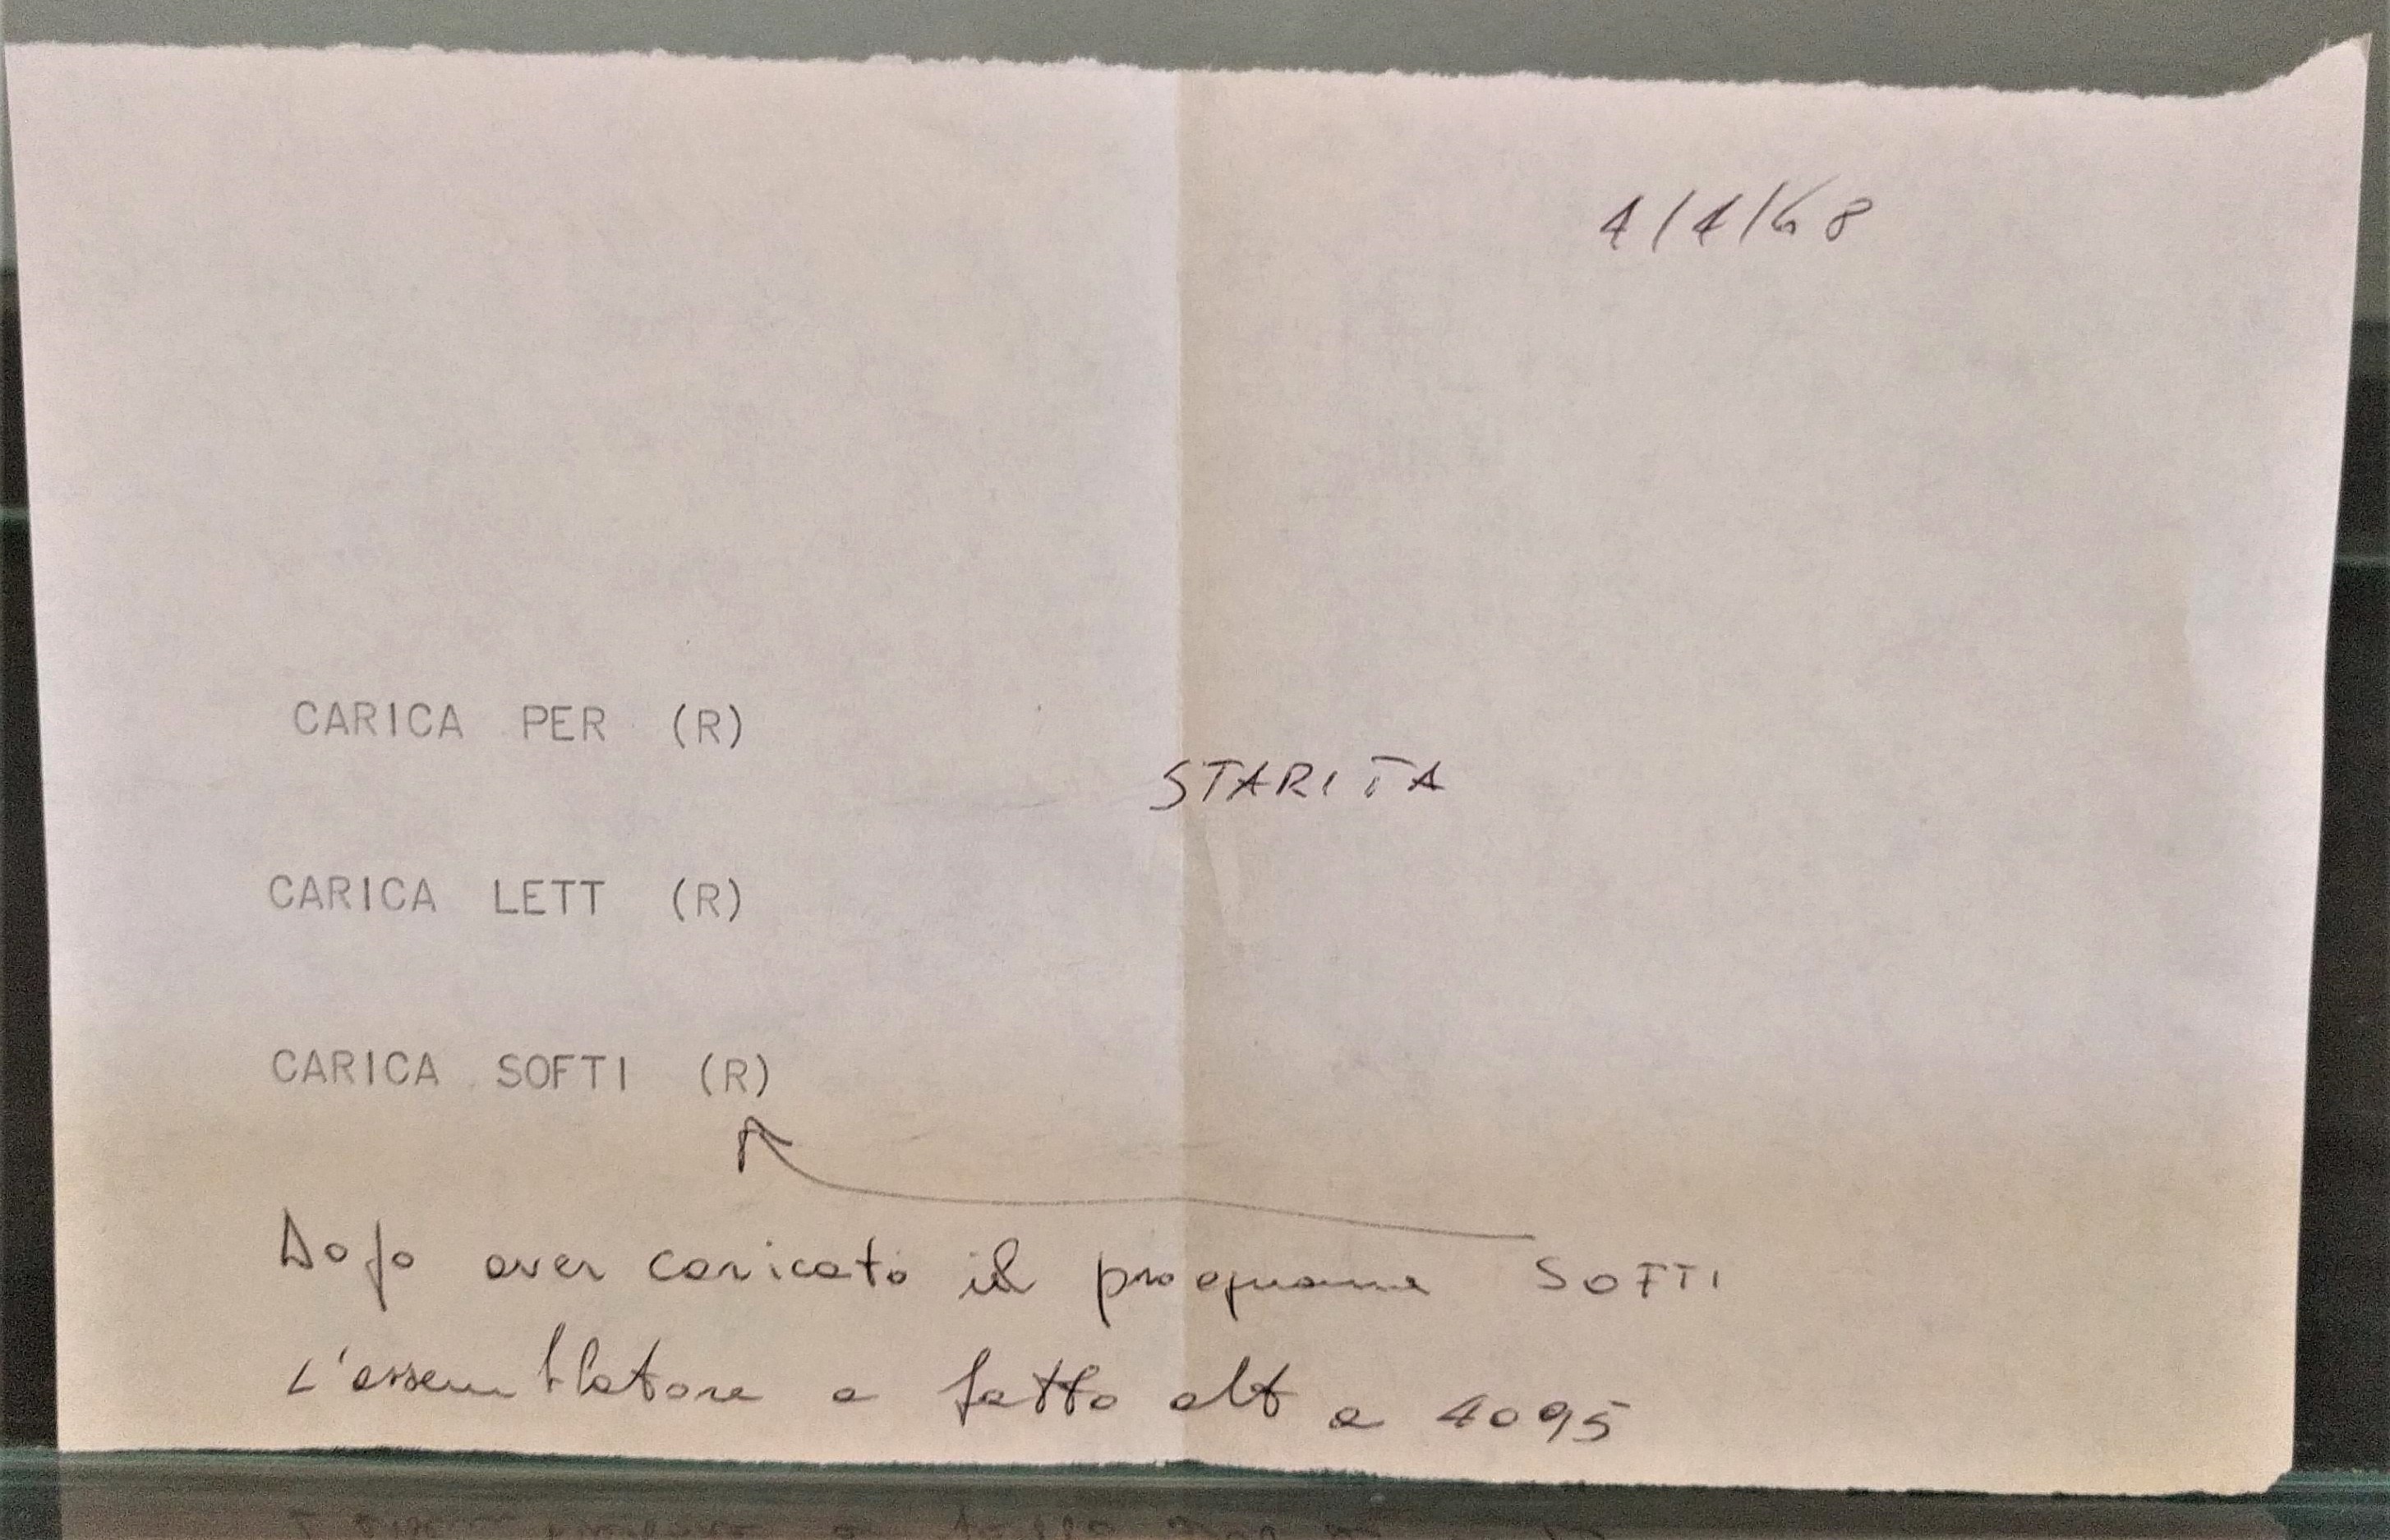 4/4/68
CARICA PER (R)
STARITA
CARICA LETT (R)
CARICA SOFTI (R)
Dopo aver caricato il programma SOFTI
L'assemblatore a fatto alt a 4095